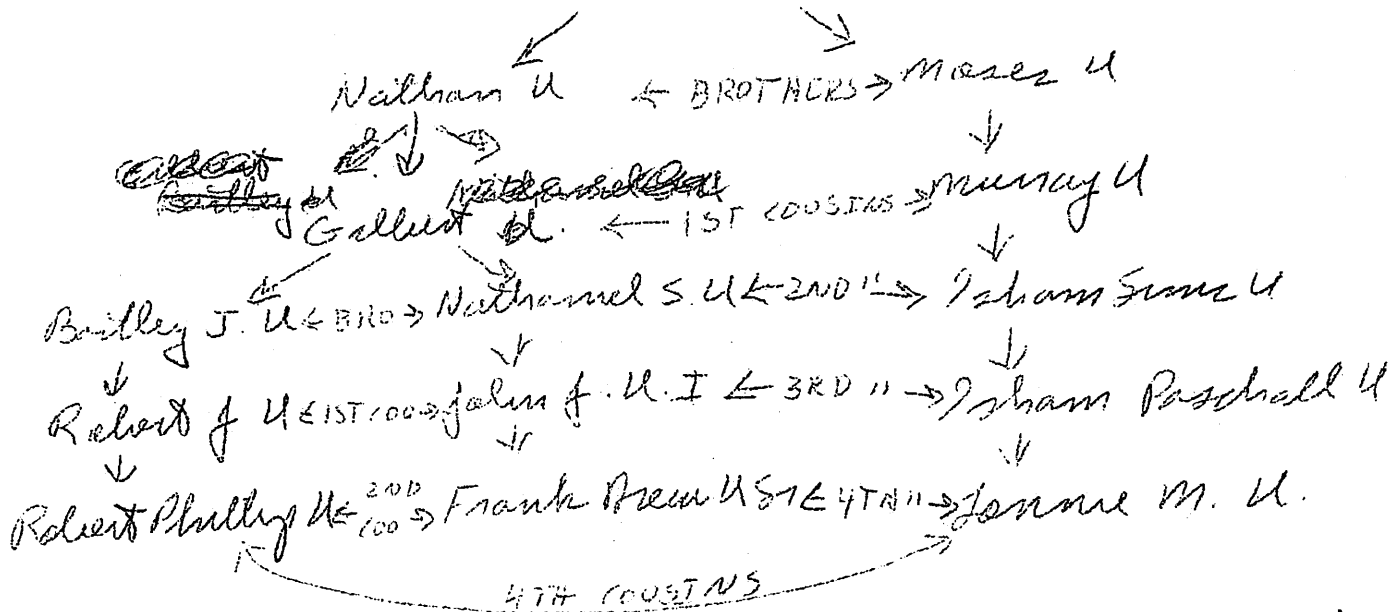 Nathan U ← BROTHERS → Moses U
Gilbert U. ← 1ST COUSINS → Murray U
Bailley J. U ← BRO → Nathaniel S. U ← 2ND " → Isham Sims U
Robert J U ← 1ST COO → John J. U. I ← 3RD " → Isham Paschall U
Robert Phillip U ← 2ND COO → Frank Drew U Sr ← 4TH " → M. U.
4TH COUSINS